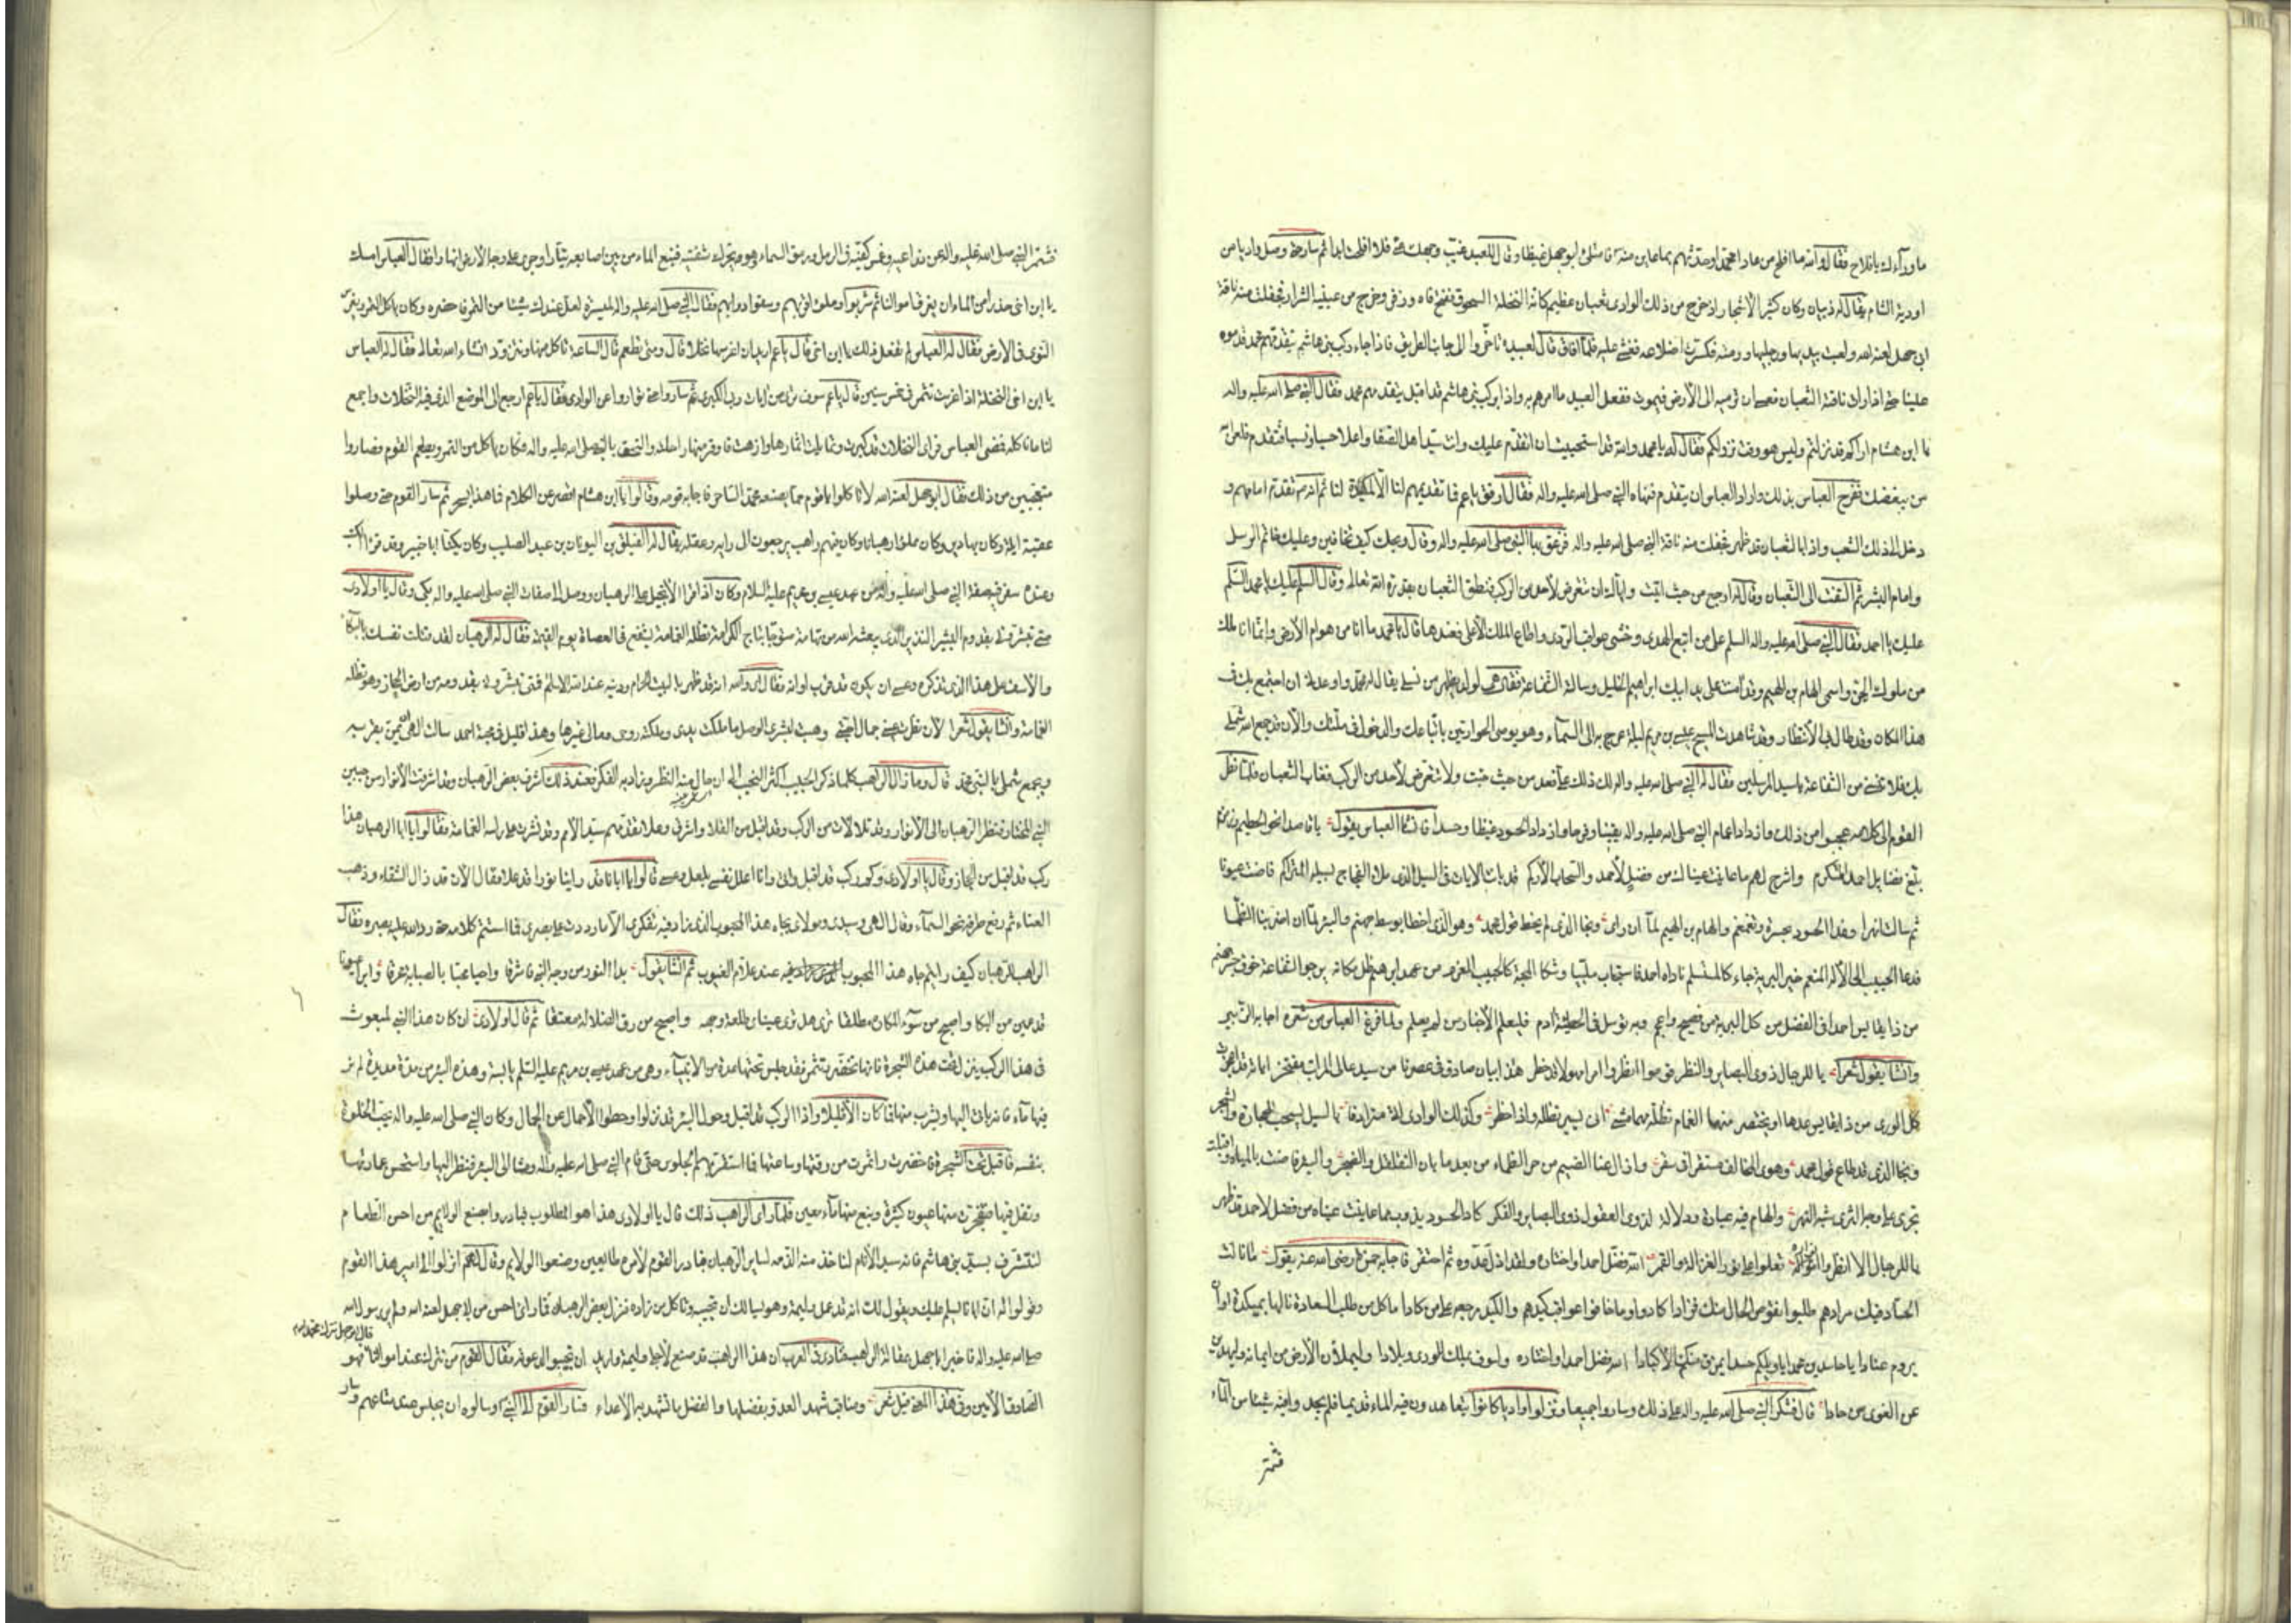 ما ورآءك يا فلاح فقال والله ما افلح من عادا محمدا وحدثهم بما عاين منه قامتلئ ابوجهل غيظا وقال للعبيد ثم سار حتى وصل واديا من
اودية الشام يقال له ذبيان وكان كثير الأشجار اذ خرج من ذلك الوادى ثعبان عظيم كانه النخلة السحوق ففتح فاه وزفر وخرج من عينيه الشرار فجفلت منه ناقة
ابى جهل لعنه الله ولعبت بيديها ورجليها ورمته فكسرت اضلاعه فغشى عليه فلما افاق قال لعبيده تاخروا الى جانب الطريق فاذا جاء ركب بنى هاشم يتقدمهم محمد قدموه
علينا حتى اذا رات ناقته الثعبان فعسى ان ترميه الى الأرض فيموت ففعل العبيد ما امرهم به واذا بركب بنى هاشم قد اقبل يتقدمهم محمد فقال النبى صلى الله عليه واله
يا ابن هشام اراكم قد نزلتم وليس هو وقت نزولكم فقال له يا محمد والله قد استحييت ان اتقدم عليك وانت سيد اهل الصفا واعلا حسبا ونسبا فتقدم فلعن الله
من يبغضك ففرح العباس بذلك واراد العباس ان يتقدم فنهاه النبى صلى الله عليه واله فقال ارفق يا عم فما تقديمهم لنا الا لمكيدة لنا ثم انه تقدم امامهم و
دخل الى ذلك الشعب واذا بالثعبان قد ظهر فجفلت منه ناقة النبى صلى الله عليه واله فزعق بها النبى صلى الله عليه واله وقال ويحك كيف تخافين وعليك خاتم الرسل
وامام البشر ثم التفت الى الثعبان وقال له ارجع من حيث اتيت واياك ان تتعرض لأحد من الركب فنطق الثعبان بقدرة الله تعالى وقال السلم عليك يا محمد السلم
عليك يا احمد فقال النبى صلى الله عليه واله السلم على من اتبع الهدى وخشى عواقب الردى واطاع الملك الأعلى فعندها قال يا محمد ما انا من هوام الأرض وانما انا ملك
من ملوك الجن واسمى الهام بن الهيم وقد امنت على يد ابيك ابراهيم الخليل وسالته الشفاعة فقال هى لولد يظهر من نسلى يقال له محمد واوعدنى ان اجتمع بك فى
هذا المكان وقد طال بى الأنتظار وقد شاهدت المسيح عيسى بن مريم ليلة عرج به الى السمآء وهو يوصى الحواريين باتباعك والدخول فى ملتك والآن قد جمع الله شملى
بك فلا تنسنى من الشفاعة يا سيد المرسلين فقال له النبى صلى الله عليه واله لك ذلك على فعد من حيث جئت ولا تتعرض لأحد من الركب فغاب الثعبان فلما نظر
القوم الى كلامه عجبوا من ذلك وازدادا عمام النبى صلى الله عليه واله يقينا وفرحا وازداد الحسود غيظا وحسدا فانشا العباس يقول يا قاصدا نحو الحطيم وزمزم
بلغ فضايل احمد المتكرم واشرح لهم ما عاينت عيناك من فضل لأحمد والسحاب الأركم قد بات الايات فى السيل الذى ملا الفجاج بسيله المتراكم فاضت عيونا
ثم سالت انهرا وغدا الحسود بحسرة وتغمغم والهام بن الهيم لما ان راى ونجا الذى لم يخط قول محمد وهو الذى اخطا بوسط جهنم والبئر لما ان اضر بنا الظما
فدعا الحبيب الى الآله المنعم خير البرية جاء كالمستسلم ناداه احمد فاستجاب ملبيا وشكا المحبة كالحبيب المغرم من عهد ابرهيم ظل مكانه يرجو الشفاعة خوف جسر جهنم
من ذا يقايس احمدا فى الفضل من كل البرية من فصيح واعجم وبه توسل فى الخطيئة ادم فليعلم الأخبار من لم يعلم ولما فرغ العباس من شعره اجابه الزبير
وانشا يقول شعرا يا للرجال ذوى البصاير والنظر قوموا انظروا امرا مهولا قد خطر هذا بيان صادق فى عصرنا من سيد عالى المراتب مفتخر اياته قد اعجزت
كل الورى من ذا يقايس عدها او يختصر منها الغمام تظله مهما مشى ان يسير تظله واذا حظر وكذلك الوادى اتى مترادفا بالسيل يسحب للحجارة والشجر
ونجا الذى قد طاع قول محمد وهوى المخالف مستقرا فى سقر وازال عنا الضيم من حر الظماء من بعد ما بان التقلقل والضجر والبئر فاضت بالمياه واقبلت
تجرى على وجه الثرى شبه النهر والهام فيه عبارة ودلالة لذوى العقول ذوى البصاير والفكر كاد الحسود يذوب مما عاينت عيناه من فضل لأحمد قد ظهر
يا للرجال الا انظروا انواره تعلوا على نور الغزالة والقمر الله فضل احمدا واختاره ولقد اذل عدوه ثم احتقر فاجابه حمزة رضى الله عنه يقول ما نالت
الحساد فيك مرادهم طلبوا نقوص الحال منك فزادا كادوا وما خافوا عواقب كيدهم والكيد مرجعه على من كادا ما كل من طلب السعادة نالها بمكيدة او ان
يروم عنادا يا حاسدين محمدا يا ويلكم حسدا تمزق منكم الأكبادا الله فضل احمدا واختاره ولسوف يملك الورى وبلادا وليملأن الأرض من ايمانه وليهدين
عن الغوى من حادا قال فشكر النبى صلى الله عليه واله على ذلك وساروا جميعا ونزلوا واديا كانوا يتعاهدون فيه الماء قديما فلم يجدوا فيه شيئا من المآء
فشمر
فشمر النبى صلى الله عليه واله عن ذراعيه وغمس كفيه فى الرمل ورمق السماء وهو يحرك شفتيه فنبع الماء من بين اصابعه تيارا وجرى على وجه الأرض انهارا فقال العباس امسك
يا ابن اخى حذرا من الماء ان يغرق اموالنا ثم شربوا وملؤا قربهم وسقوا دوابهم فقال النبى صلى الله عليه واله لميسرة لعل عندك شيئا من التمر فاحضره وكان ياكل التمر ويغرس
النوى فى الارض فقال له العباس لم تفعل ذلك يا ابن اخى قال يا عم اريد ان اغرسها نخلا قال ومتى تطعم قال الساعة ناكل منها ونتزود انشاء الله تعالى فقال له العباس
يا ابن اخى النخلة اذا غرست تثمر فى خمس سنين قال يا عم سوف ترى من ايات ربى الكبرى ثم ساروا حتى تواروا عن الوادى فقال يا عم ارجع الى الموضع الذى فيه النخلات واجمع
لنا ما ناكله فمضى العباس فراى النخلات قد كبرت وتمايلت اثمارها وازهرت فاوقر منها راحلة والتحق بالنبى صلى الله عليه واله فكان ياكل من التمر ويطعم القوم فصاروا
متعجبين من ذلك فقال ابوجهل لعنه الله لا تاكلوا يا قوم مما يصنعه محمد الساحر فاجابه قومه وقالوا يا ابن هشام اقصر عن الكلام فما هذا بسحر ثم سار القوم حتى وصلوا
عقبة ايلة وكان بها دير وكان مملوا رهبانا وكان فيهم راهب يرجعون الى رايه وعقله يقال له الفيلق بن اليونان بن عبد الصليب وكان يكنى ابا خبير وقد قرا الكتب
وعنده سفر فيه صفة النبى صلى الله عليه واله من عهد عيسى بن مريم عليه السلام وكان اذا قرا الأنجيل على الرهبان ووصل الى صفات النبى صلى الله عليه واله بكى وقال يا اولادى
متى تبشرونى بقدوم البشير النذير الذى يبعثه الله من تهامة متوجا بتاج الكرامة تظله الغمامة يشفع فى العصاة يوم القيمة فقال له الرهبان لقد قتلت نفسك بالبكآء
والأسف على هذا الذى تذكره وعسى ان يكون قد قرب اوانه فقال اى والله انه قد ظهر بالبيت الحرام ودينه عند الله الاسلام فمتى تبشرونى بقدومه من ارض الحجاز وهو تظله
الغمامة وانشا يقول شعرا لأن نظرت عينى جمال احبتى وهبت لبشرى الوصل ما ملكت يدى وملكته روحى ومالى غيرها وهذا قليل فى محبة احمد سالت الهى ان يمن بقربه
ويجمع شملى بالنبى محمد قال وما زال الراهب كلما ذكر الحبيب اكثر النحيب الى ان حال منه النظر وزاد به الفكر فعند ذلك اشرف بعض الرهبان وقد اشرقت الأنوار من جبين
النبى المختار فنظر الرهبان الى الأنوار وقد تلالات من الركب وقد اقبل من الفلا واشرق وعلا تقدمهم سيد الأمم وقد نشرت على راسه الغمامة فقالوا يا ابا الرهبان هذا
ركب قد اقبل من الحجاز وقال يا اولادى وكم ركب قد اقبل واتى وانا اعلل نفسى بلعل وعسى قالوا يا ابانا قد راينا نورا قد علا فقال الآن قد زال الشقاء وذهب
العناء ثم رفع طرفه نحو السمآء وقال الهى وسيدى ومولاى بجاه هذا المحبوب الذى زاد فيه تفكرى الا ما رددت على بصرى فما استتم كلامه حتى رد الله عليه بصره فقال
الراهب للرهبان كيف رايتم جاه هذا المحبوب عند علام الغيوب ثم انشا يقول بدا النور من وجه النبى فاشرقا واحيا محبا بالصبابة محرقا وابرا عيونا
قد عمين من البكا واصبح من سوء المكاره مطلقا ترى هل ترى عيناى طلعة وجهه واصبح من رق الضلالة معتقا ثم قال اولادى ان كان هذا النبى المبعوث
فى هذا الركب ينزل تحت هذه الشجرة فانها تخضر وتثمر فقد جلس تحتها عدة من الانبيآء وهى من عهد عيسى بن مريم عليه السلم يابسة وهذه البئر من مدة مديدة لم نر
فيها مآء فانه ياتى اليها ويشرب منها فما كان الا قليلا واذا الركب قد اقبل وحول البئر قد نزلوا وحطوا الأحمال عن الجمال وكان النبى صلى الله عليه واله يحب الخلوة
بنفسه فاقبل تحت الشجرة فاخضرت واثمرت من وقتها وساعتها فما استقر بهم الجلوس حتى قام النبى صلى الله عليه واله ومشا الى البئر فنظر اليها واستحسن عمارتها
وتفل فيها فتفجرت منها عيون كثيرة ونبع منها مآء معين فلما راى الراهب ذلك قال يا اولادى هذا هو المطلوب فبادروا بصنع الولايم من احسن الطعام
لنتشرف بسيد بنى هاشم فانه سيد الأنام لناخذ منه الذمة لساير الرهبان فبادر القوم لأمره طايعين وصنعوا الولايم وقال لهم انزلوا الى امير هذا القوم
وقولوا له ان ابانا يسلم عليك ويقول لك انه قد عمل وليمة وهو يسالك ان تجيبه وتاكل من زاده فنزل بعض الرهبان فما راى احسن من ابى جهل لعنه الله ولم ير رسول الله
صلى الله عليه واله فاخبر ابا جهل بمقالة الراهب فنادى فى العرب ان هذا الراهب قد صنع لأجلى وليمة واريد ان تجيبوا الى دعوته فقال القوم من نترك عند اموالنا
قال ابوجهل نترك محمدا فهو
الصادق الأمين وفى هذا المعنى قيل شعر ومناقب شهد العدو بفضلها والفضل ما تشهد به الأعداء فسار القوم الى النبى وسالوه ان يجلس عند متاعهم وسار